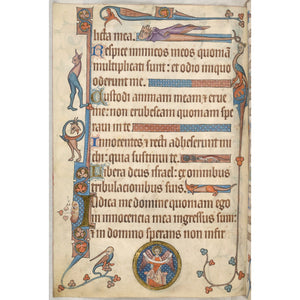 licta mea.
Respice inimicos meos quoniam
multiplicati sunt: et odio iniquo
oderunt me.
Custodi animam meam et erue
me: non erubescam quoniam spe
raui in te
Innocentes et recti adheserunt mi
chi: quia sustinui te.
Libera deus israel: ex omnibus
tribulacionibus suis.
Iudica me domine quoniam ego
in innocencia mea ingressus sum:
et in domino sperans non infir